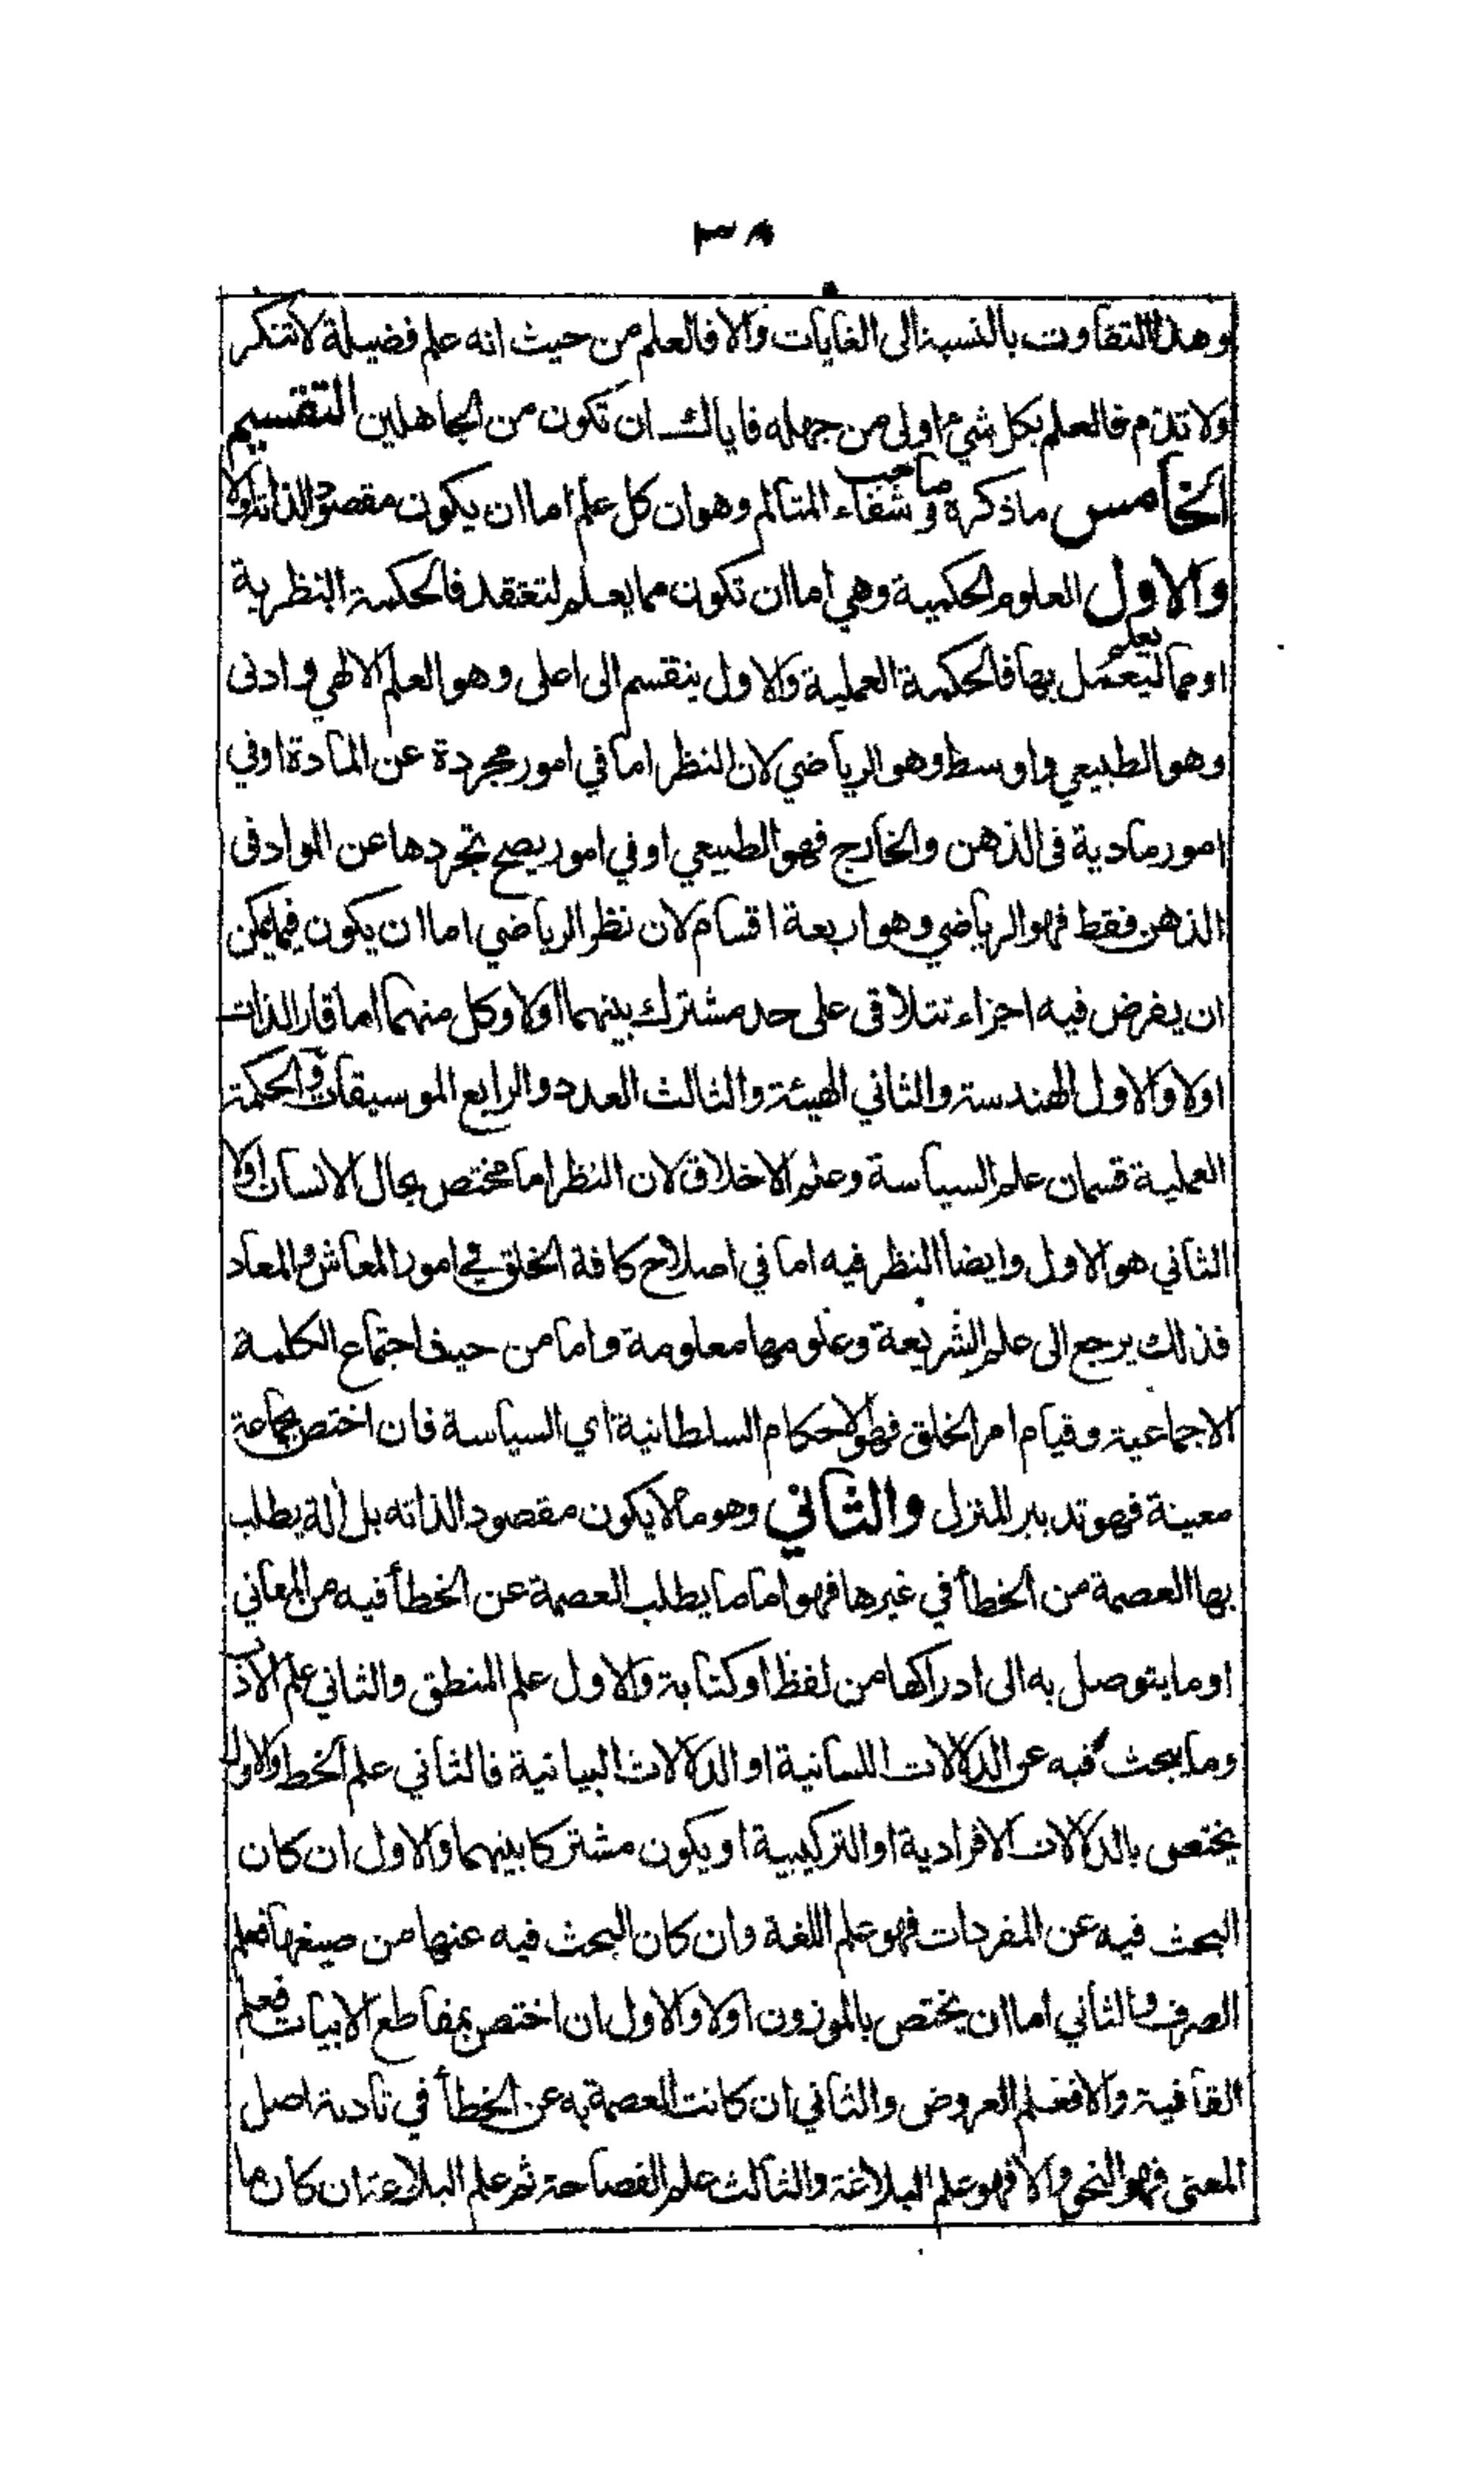 ٣٨
وهذا التفاوت بالنسبة الى الغايات والا فالعلم من حيث انه علم فضيلة لا تنكر
ولا تذم فالعلم بكل شيء اولى من جهله فاياك ان تكون من الجاهلين التقسيم
الخامس ما ذكره صاحب شفاء المتالم وهو ان كل علم اما ان يكون مقصودا لذاته اولا
والاول العلوم الحكمية وهي اما ان تكون مما يعلم لتعتقد فالحكمة النظرية
او مما يعلم ليعمل بها فالحكمة العملية والاول ينقسم الى اعلى وهو العلم الالهي وادنى
وهو الطبيعي واوسط وهو الرياضي لان النظر اما في امور مجردة عن المادة اوفي
امور مادية فى الذهن والخارج فهو الطبيعي او في امور يصح تجردها عن المواد فى
الذهن فقط فهو الرياضي وهو اربعة اقسام لان نظر الرياضي اما ان يكون فيما يمكن
ان يفرض فيه اجزاء تتلاقى على حد مشترك بينهما اولا وكل منهما اما قار الذات
اولا والاول الهندسة والثاني الهيئة والثالث العدد والرابع الموسيقات والحكمة
العملية قسمان علم السياسة وعلم الاخلاق لان النظر اما مختص بحال الانسان اولا
الثاني هو الاول وايضا النظر فيه اما في اصلاح كافة الخلق في امور المعاش والمعاد
فذلك يرجع الى علم الشريعة وعلومها معلومة واما من حيث اجتماع الكلمة
الاجماعية وقيام امر الخلق فهو الاحكام السلطانية اي السياسة فان اختص بجماعة
معينة فهو تدبير المنزل والثاني وهو ما لا يكون مقصودا لذاته بل آلة يطلب
بها العصمة من الخطأ في غيرها فهو اما ما يطلب العصمة عن الخطأ فيه من المعاني
او ما يتوصل به الى ادراكها من لفظ او كتابة والاول علم المنطق والثاني علم الادب
وما يبحث فيه عن الدلالات اللسانية او الدلالات البيانية فالثاني علم الخط والاول
يختص بالدلالات الافرادية او التركيبية او يكون مشتركا بينهما والاول ان كان
البحث فيه عن المفردات فهو علم اللغة وان كان البحث فيه عنها من صيغها فعلم
الصرف والثاني اما ان يختص بالموزون اولا والاول ان اختص بمقاطع الابيات فعلم
القافية والا فعلم العروض والثاني ان كانت العصمة به عن الخطأ في تادية اصل
المعنى فهو النحو والا فهو علم البلاغة والثالث علم الفصاحة ثم علم البلاغة ان كان ما